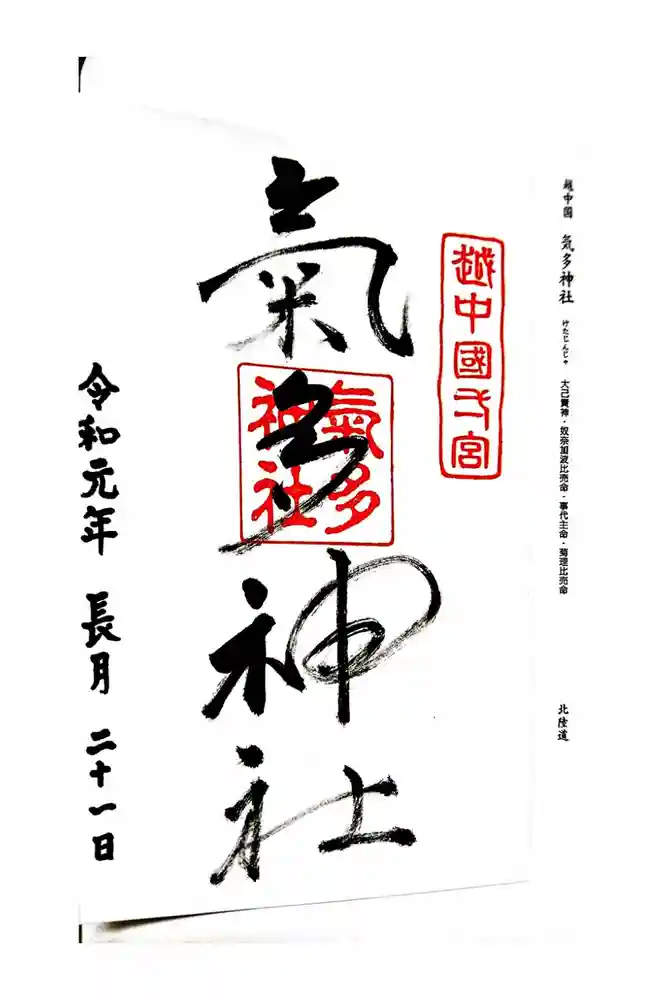 越中國 気多神社 けたじんじゃ 大己貴神・奴奈加波比売命・事代主命・菊理比売命 北陸道
越中國一宮
氣多神社
氣多
神社
令和元年 長月 二十一日